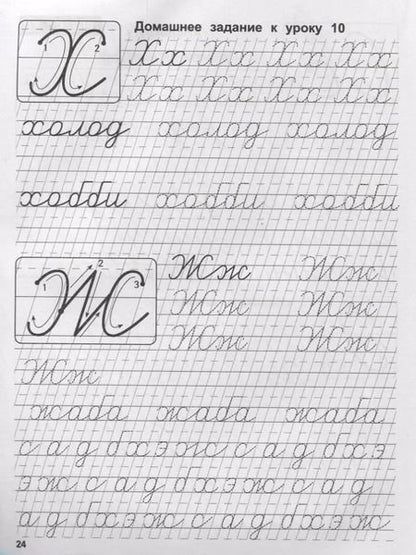 Домашнее задание к уроку 10
Х 1 2
Хх Хх Хх Хх
Хх Хх Хх Хх
холод холод холод
хобби хобби хобби
Ж 1 2 3
Жж Жж
Жж Жж
Жж Жж
Жж
жаба жаба жаба
с а д б х э ж с а д б х э
э ж с а д б х э ж с а д
а д б х э ж с а д б х э
24